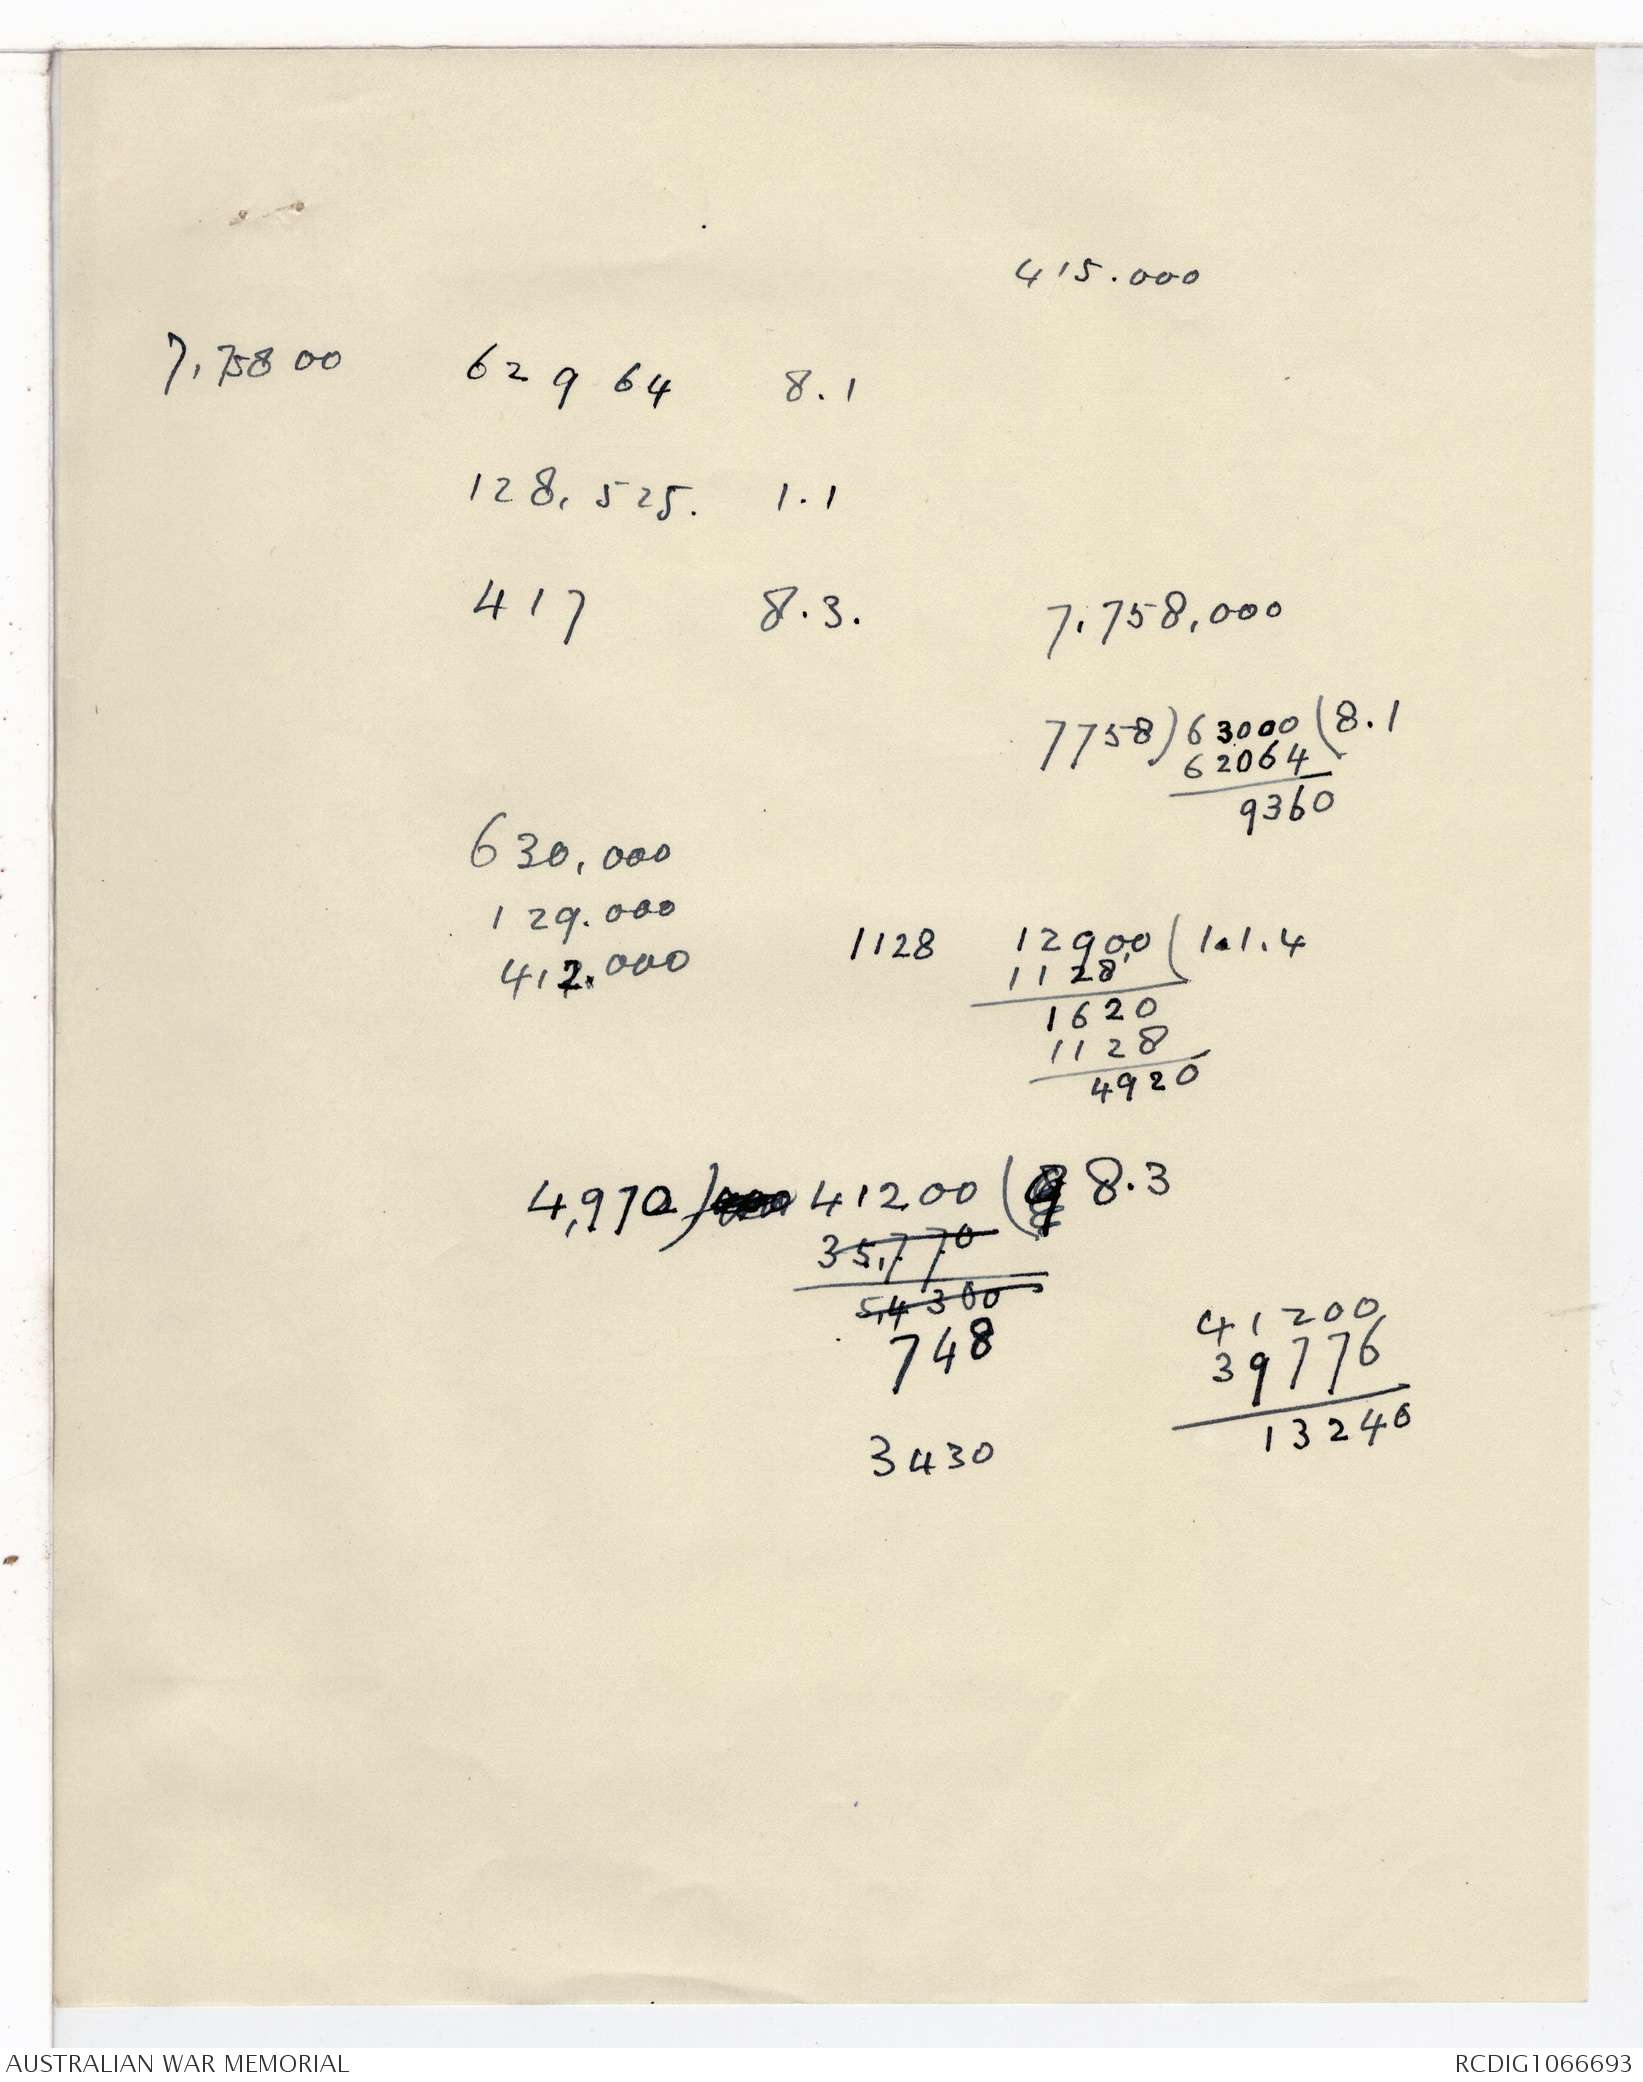 415.000
7,75800 62964 8.1
128,525. 1.1
417 8.3. 7,758,000
7758)63000(8.1
62064
9360
630,000
129.000
412.000
1128 12900(1.1.4
1128
1620
1128
4920
4,972) 41200( 8.3
35,770
54300
748
41200
39776
13240
3430
AUSTRALIAN WAR MEMORIAL RCDIG1066693